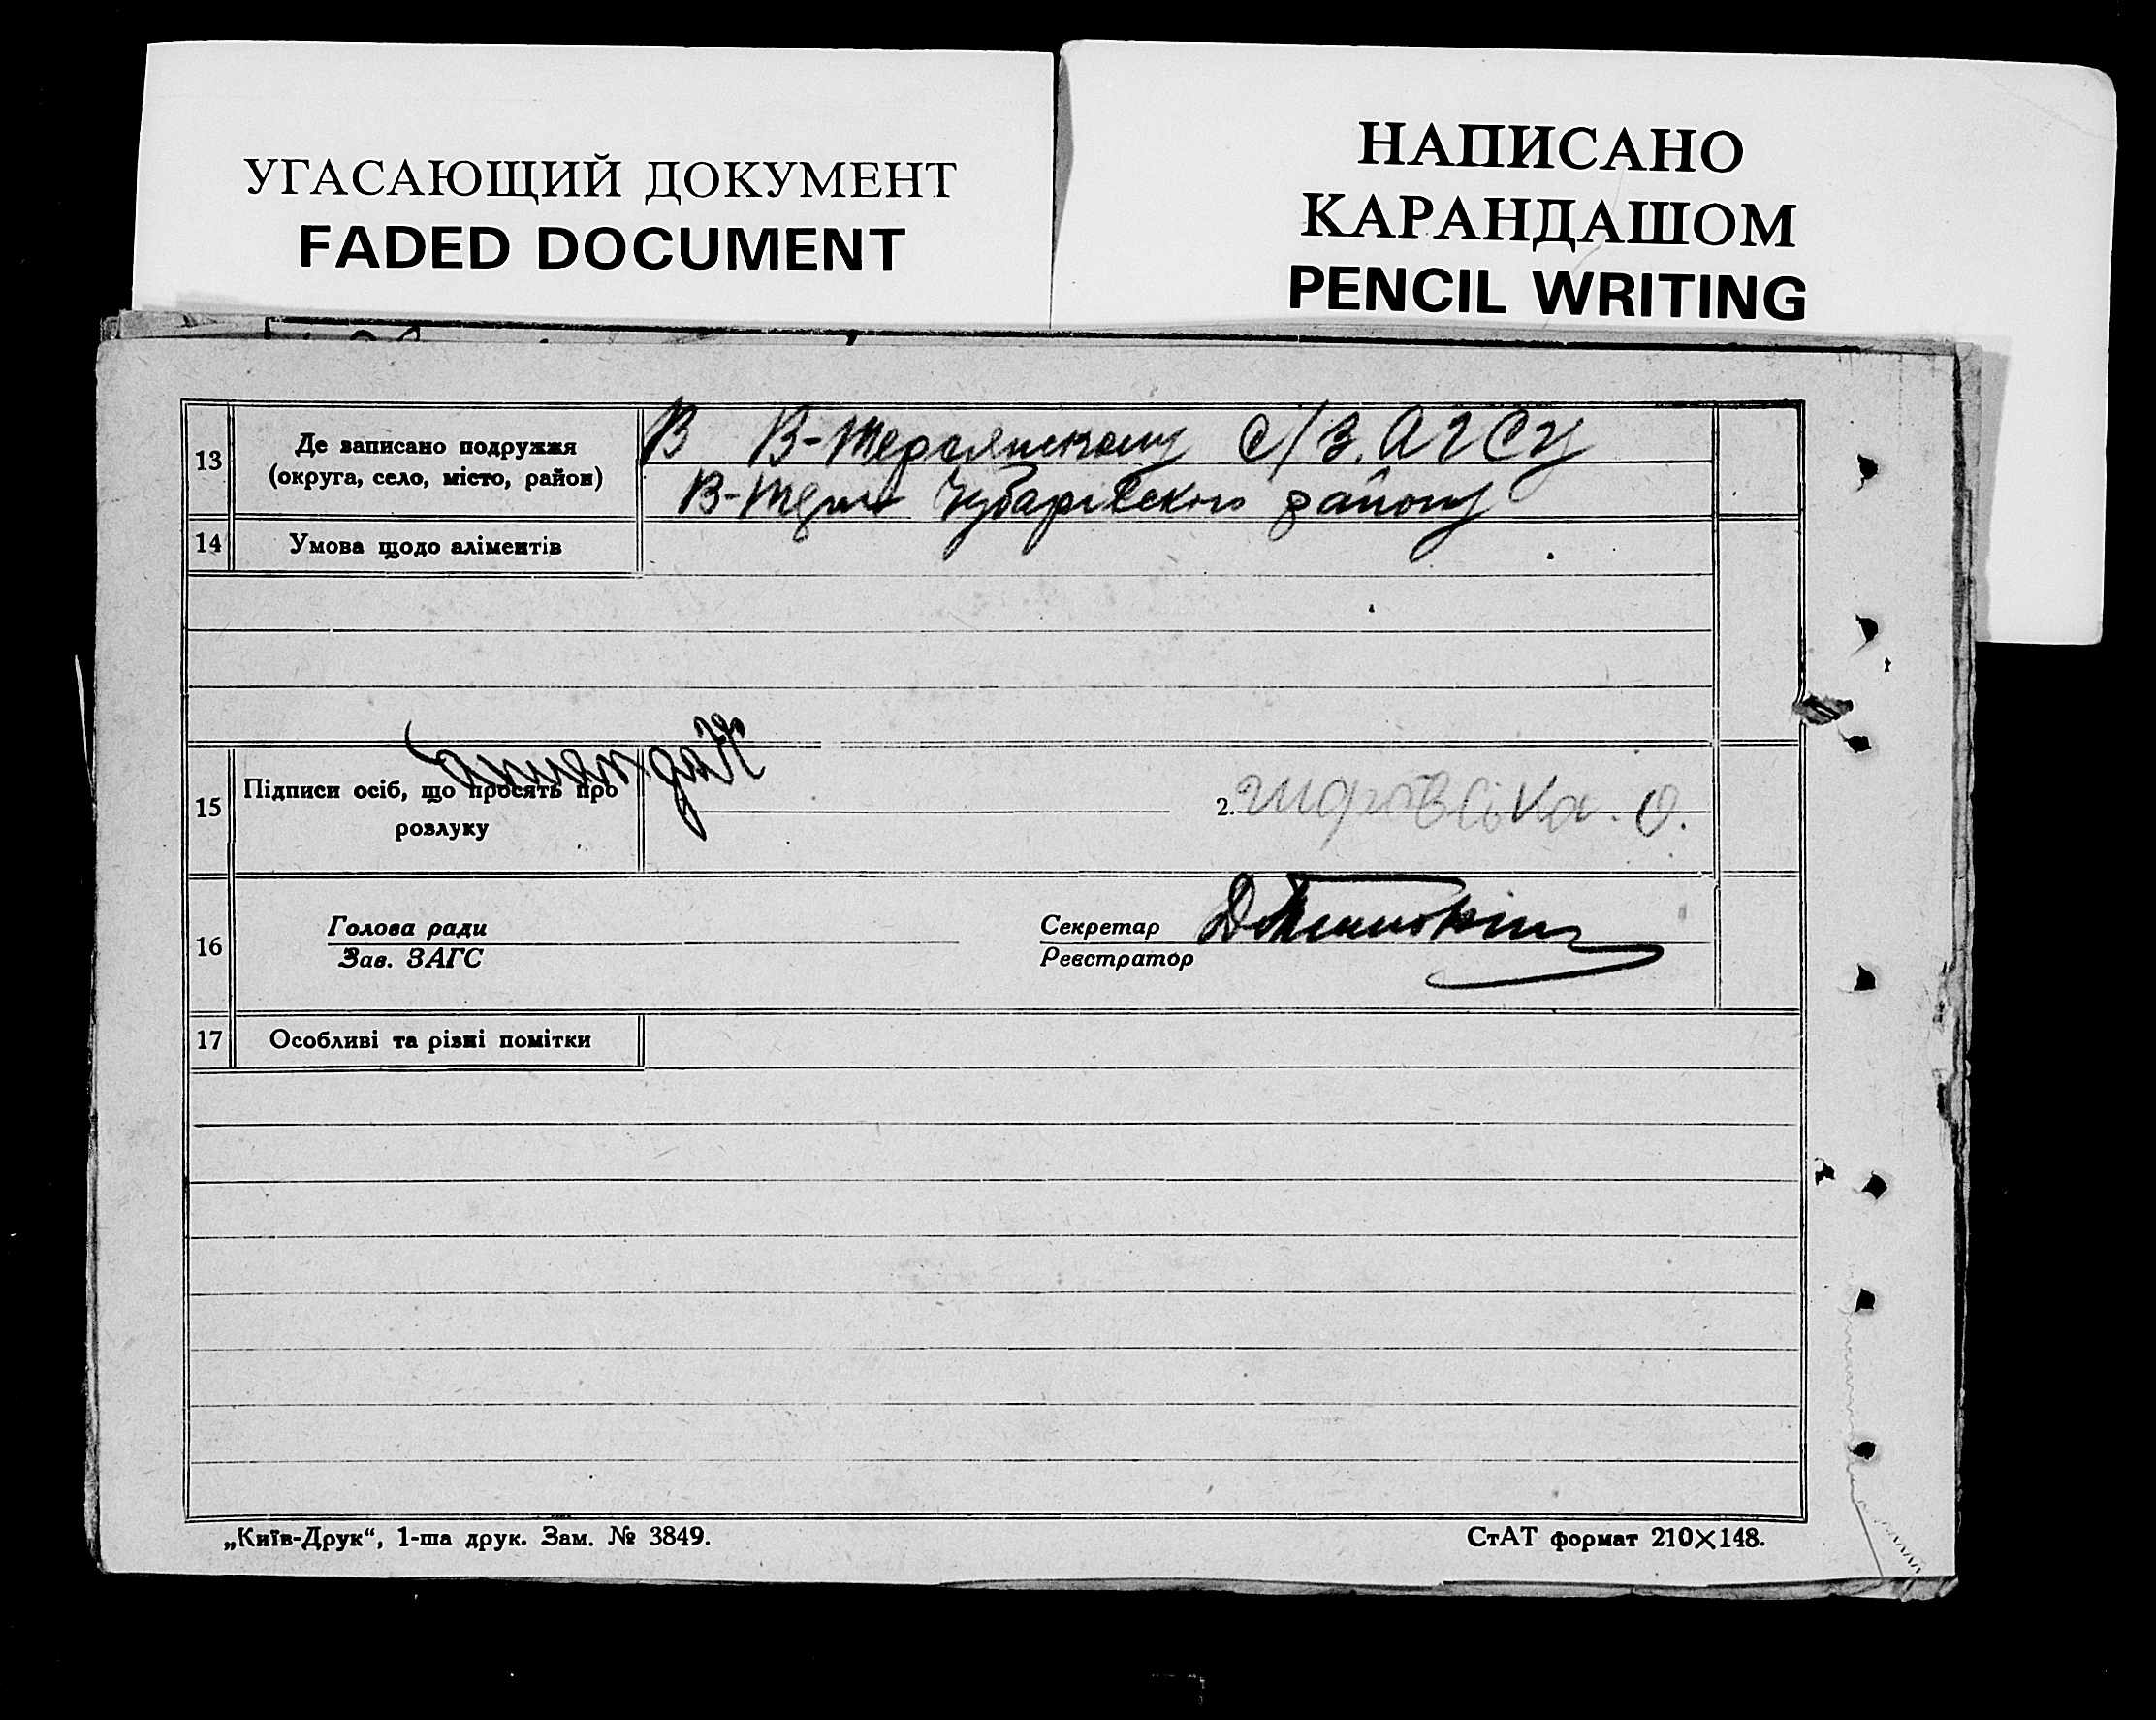 УГАСАЮЩИЙ ДОКУМЕНТ
FADED DOCUMENT
НАПИСАНО
КАРАНДАШОМ
PENCIL WRITING
13 Де записано подружжя
(округа, село, місто, район)
В В-Терсянскому с/З.АГСу
В-Терса Чубарівского району
14 Умова щодо аліментів
15 Підписи осіб, що просять про
розлуку
2.
16 Голова ради
Зав. ЗАГС
Секретар
Реєстратор
17 Особливі та різні помітки
„Київ-Друк“, 1-ша друк. Зам. № 3849.
СтАТ формат 210×148.